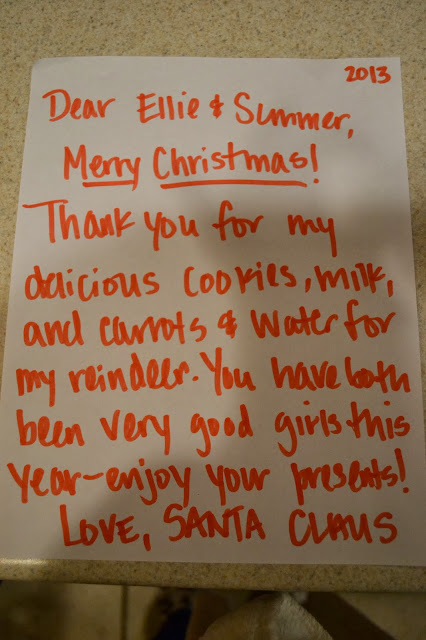 2013
Dear Ellie & Summer,
Merry Christmas!
Thank you for my
delicious cookies, milk,
and carrots & water for
my reindeer. You have both
been very good girls this
year-enjoy your presents!
LOVE, SANTA CLAUS